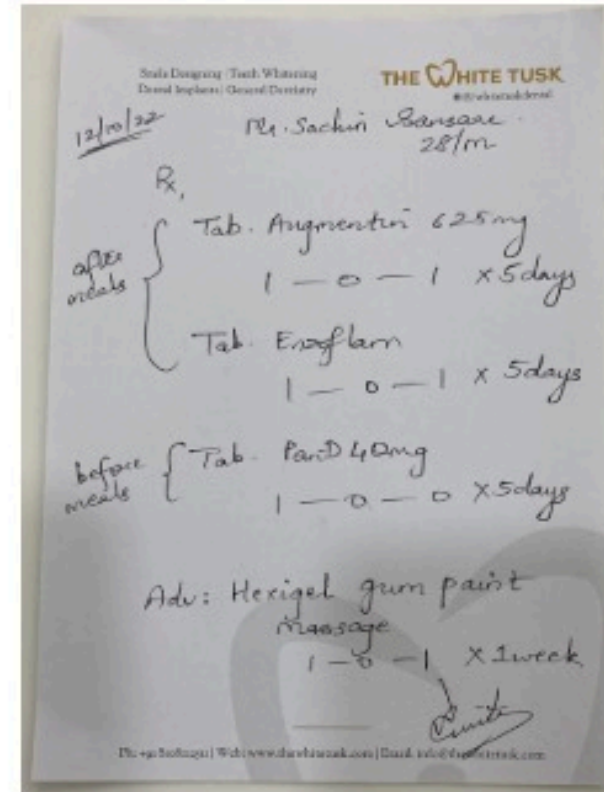 Smile Designing | Teeth Whitening
Dental Implants | General Dentistry
THE WHITE TUSK
12/10/22
Mr. Sachin Sansare
28/m
Rx,
after meals
Tab. Augmentin 625mg
1 — 0 — 1 x 5days
Tab. Enzoflam
1 — 0 — 1 x 5days
before meals
Tab. Pan D 40mg
1 — 0 — 0 x 5days
Adv: Hexigel gum paint
massage
1 — 0 — 1 x 1week
| Web: www.thewhitetusk.com | Email: info@thewhitetusk.com